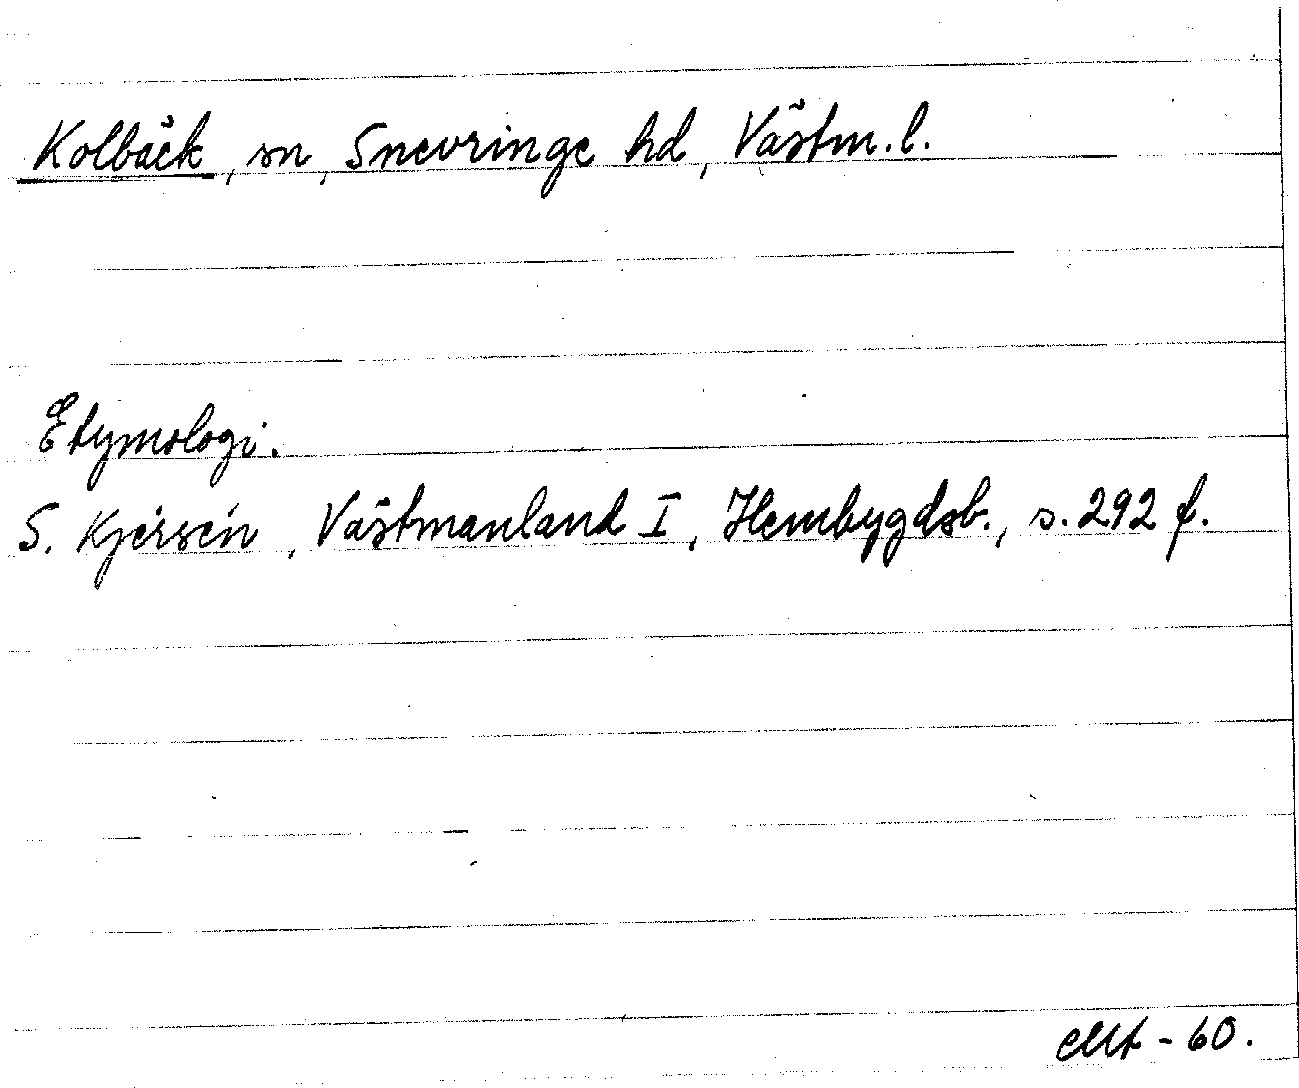 Kolbäck, sn, Snevringe hd, Västm.l.
Etymologi.
S. Kjersén, Västmanland I, Hembygdsb., s. 292 f.
-60.